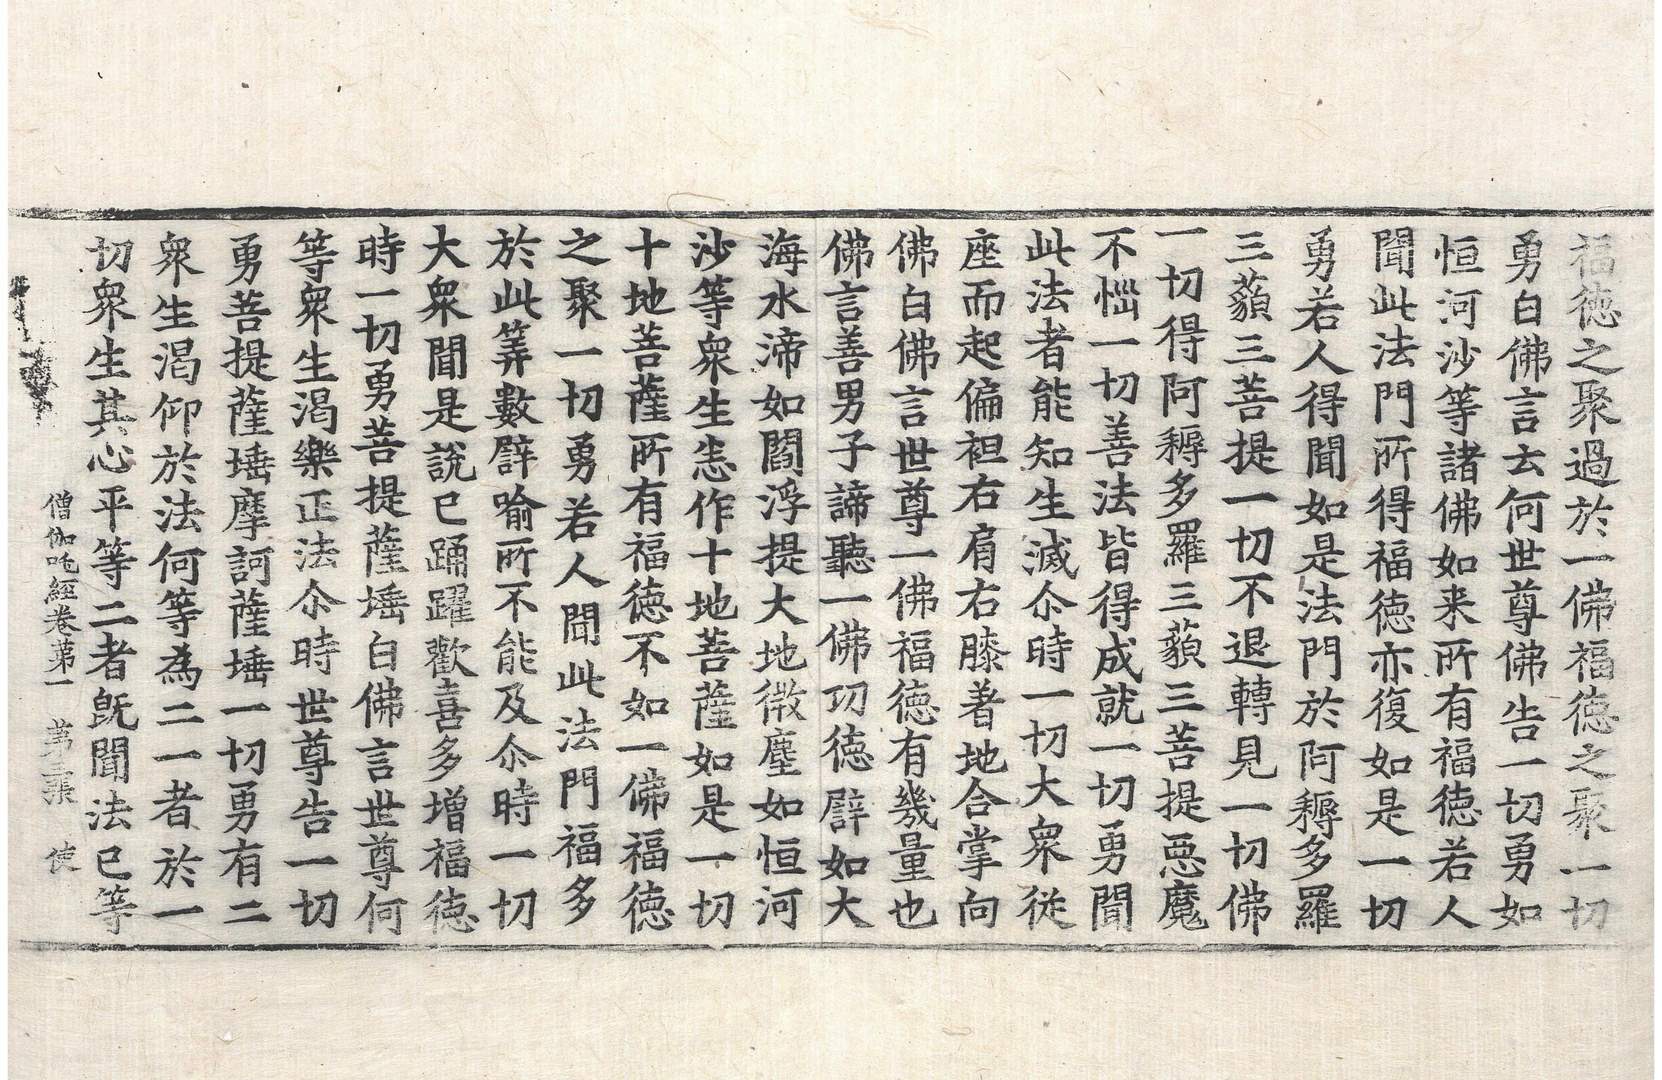 福徳之聚過於一佛福徳之聚一切
勇白佛言云何世尊佛告一切勇如
恒河沙等諸佛如来所有福徳若人
聞此法門所得福徳亦復如是一切
勇若人得聞如是法門於阿耨多羅
三藐三菩提一切不退轉見一切佛
一切得阿耨多羅三藐三菩提惡魔
不惱一切善法皆得成就一切勇聞
此法者能知生滅尒時一切大衆従
座而起偏袒右肩右膝著地合掌向
佛白佛言世尊一佛福徳有幾量也
佛言善男子諦聽一佛功徳譬如大
海水渧如閻浮提大地微塵如恒河
沙等衆生悉作十地菩薩如是一切
十地菩薩所有福徳不如一佛福徳
之聚一切勇若人聞此法門福多
於此筭數譬喻所不能及尒時一切
大衆聞是說已踊躍歡喜多增福徳
時一切勇菩提薩埵白佛言世尊何
等衆生渴樂正法尒時世尊告一切
勇菩提薩埵摩訶薩埵一切勇有二
衆生渴仰於法何等為二一者於一
切衆生其心平等二者旣聞法已等
僧伽吒經卷第一 第三張 使